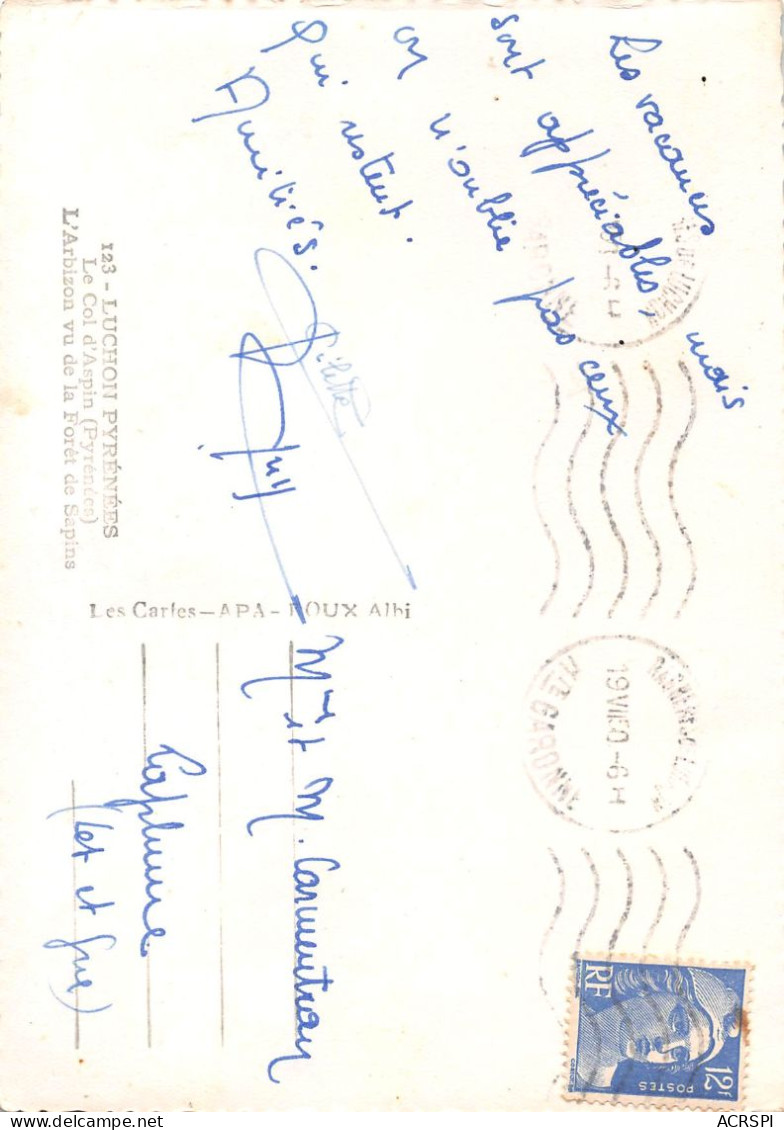 Les vacances
sont appréciables, mais
on n'oublie pas ceux
qui restent.
Amitiés.
Gilette
123 - LUCHON PYRÉNÉES
Le Col d'Aspin (Pyrénées)
L'Arbizon vu de la Forêt de Sapins
Les Cartes - APA - POUX Albi
Mme et M. Carmentran
Laplume
(Lot et Gne)
19 VII 50 - 6 H
HTE GARONNE
RF
POSTES
12F
ACRSPI